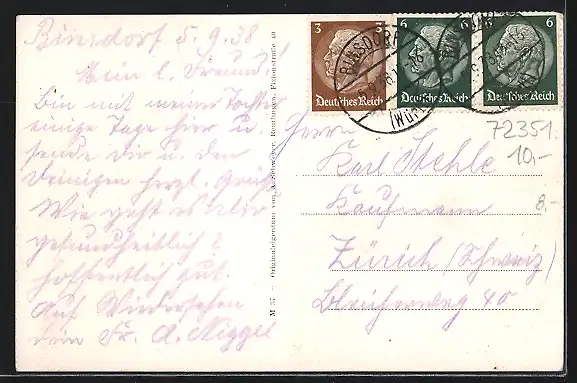 Binsdorf 5.9.38
Mein l. Freund!
Bin mit meiner Tochter
einige Tage hier u.
sende Dir u. den
Deinigen herzl. Grüße
Wie geht es Dir
gesundheitlich?
hoffentlich gut.
Auf Wiedersehen
dein Fr. A. Niggel
M 37. — Originaleigentum von A. Schweizer, Reutlingen, Fizionstraße 40
3
6
6
Deutsches Reich
Deutsches Reich
Deutsches Reich
BINSDORF
72351
10,-
8,-
Herrn
Karl Stehle
Kaufmann
Zürich (Schweiz)
Bleicherweg 40